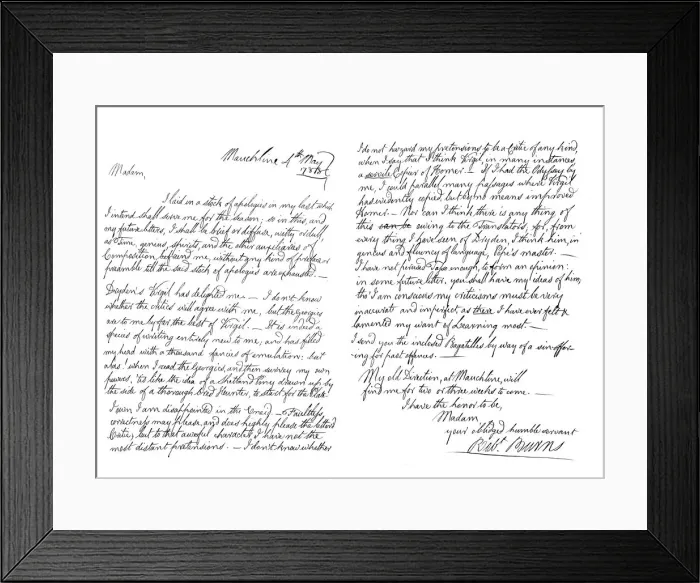 Mauchline 4th May
1788
Madam,
I laid in a stock of apologies in my last which
I intend shall serve me for the season; so in this, and
my future letters, I shall be brief or diffuse, witty or dull,
as Time, genius, spirits, and the other auxiliaries of
Composition befriend me, without any kind of preface or
preamble till the said stock of apologies are exhausted. —
Dryden's Virgil has delighted me. — I don't know
whether the critics will agree with me, but the georgics
are to me by far the best of Virgil. — It is indeed a
species of writing entirely new to me, and has filled
my head with a thousand fancies of emulation: but
alas! when I read the Georgics, and then survey my own
powers, 'tis like the idea of a Shetland Pony drawn up by
the side of a thorough bred Hunter, to start for the Plate.
I own I am disappointed in the Eneid — Faultless
correctness may please, and does highly please the letter'd
Critic; but to that aweful character I have not the
most distant pretensions. — I don't know whether
I do not hazard my pretensions to be a Critic of any kind,
when I say that I think Virgil, in many instances,
a servile Copier of Homer. — If I had the Odyssey by
me, I could parallel many passages where Virgil
has evidently copied, but by no means improved
Homer. — Nor can I think there is any thing of
this owing to the Translators; for, from
every thing I have seen of Dryden, I think him, in
genius and fluency of language, Pope's master. —
I have not perused Tasso enough, to form an opinion:
in some future letter, you shall have my ideas of him;
tho' I am conscious my criticisms must be very
inaccurate and imperfect, as there I have ever felt &
lamented my want of Learning most. —
I send you the inclosed Bagatelles by way of a sin-offer-
ing for past offences. —
My old Direction, at Mauchline, will
find me for two or three weeks to come. —
I have the honor to be,
Madam
your obliged humble servant
Robt. Burns